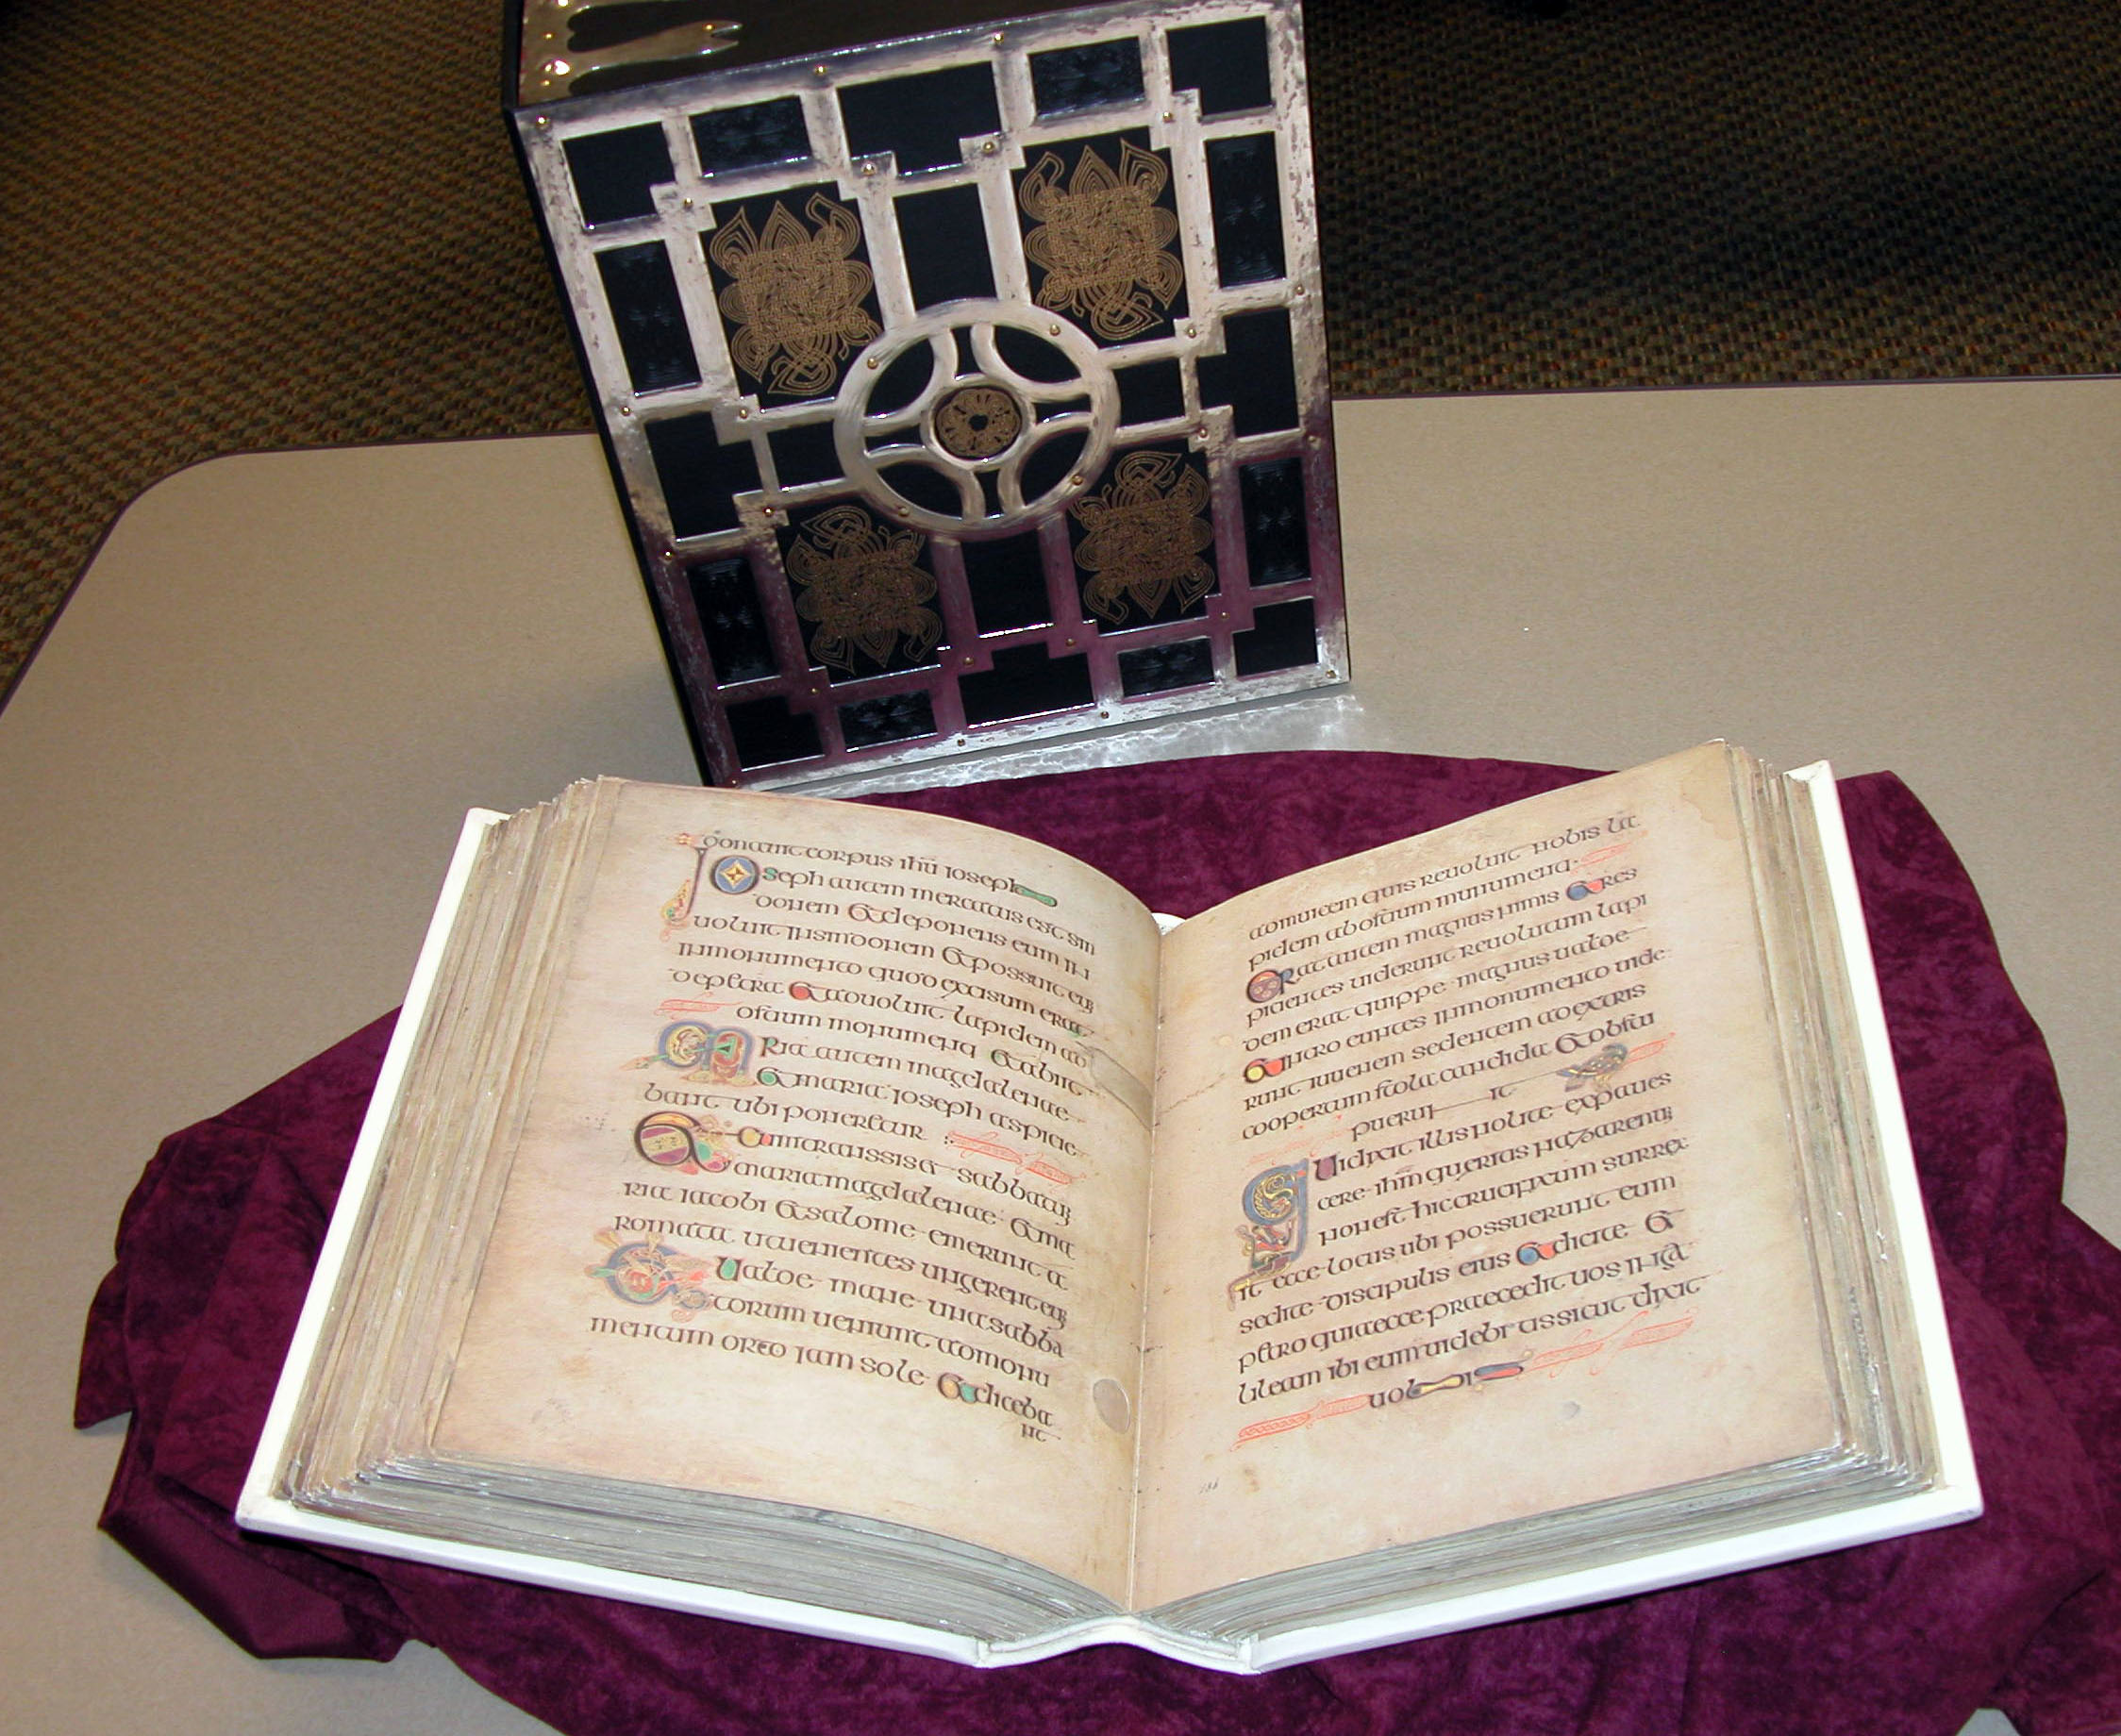 donauit corpus ihu ioseph
Ioseph autem mercatus est sin
donem et deponens eum in
uoluit in sindonem et possuit eum
in monumento quod excisum erat
de petra et aduoluit lapidem ad
ostium monumenti et abiit
Maria autem magdalenae
et maria ioseph aspicie
bant ubi poneretur
Et cum transisset sabbatum
maria magdalenae et ma
ria iacobi et salome emerunt a
romata ut uenientes ungerent eum
Et ualde mane una sabba
torum ueniunt ad monu
mentum orto iam sole et diceba
nt
ad inuicem quis reuoluit nobis la
pidem ab ostium munumenti
Erat autem magnus nimis et res
picientes uiderunt reuolutum lapi
dem erat quippe magnus ualde
et intro euntes in monumento uide
runt iuuenem sedentem ad extris
coopertum stola candida et obstu
puerunt
Qui dixit illis nolite expaues
cere ihm queritis nazarenum
non est hic crucifixum surrex
it ecce locus ubi possuerunt eum
sed ite discipulis eius et dicite et
petro quia ecce praecedit uos in gal
lileam ibi eum uidebitis sicut dixit
uobis